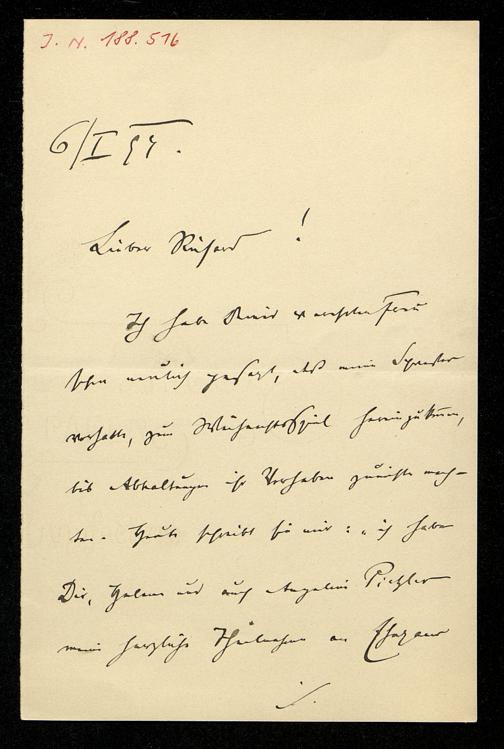 J. N. 188.516
6/I 94.
Lieber Richard!
Ich habe Deiner verehrten Frau
schon neulich gesagt, daß meine Schwester
vorhatte, zum Weihnachtsspiel hereinzukommen,
bis Abhaltungen ihr Vorhaben zunichte mach-
ten. Heute schreibt sie mir: "ich habe
Dir, Helene und auch Angelina Pichler
meine herzliche Theilnahme an